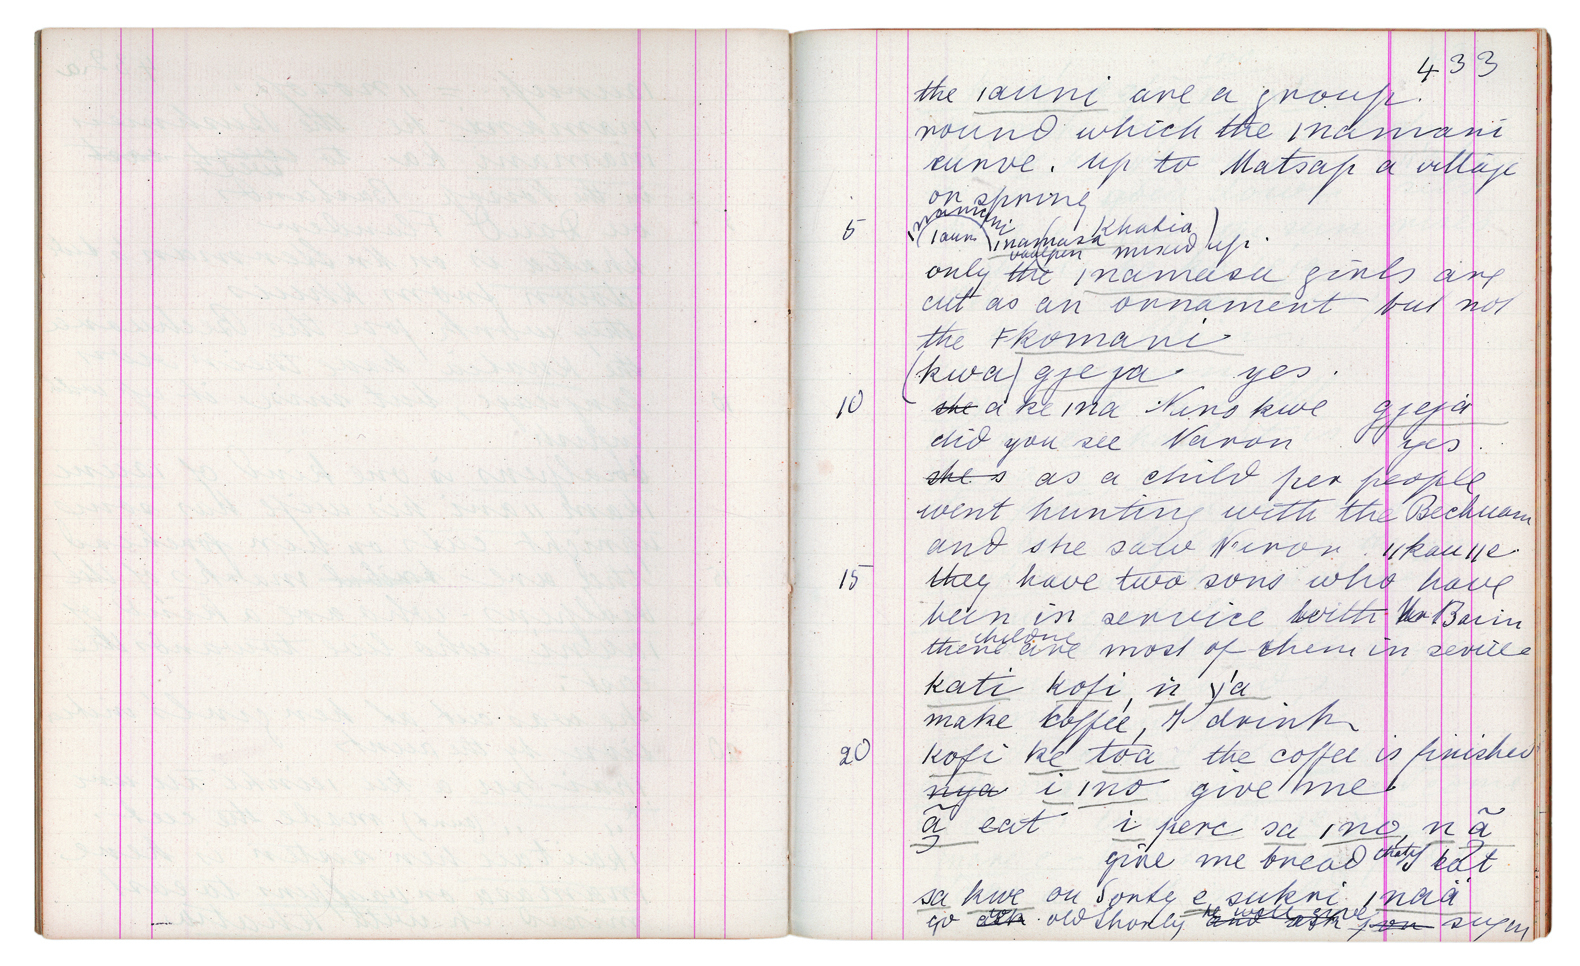 433
the ǀauni are a group.
round which the ǀnamani
curve. up to Matsap a village
or spring
5
ǀnamani
(ǀauni) ǀnamasa (Khatia) up.
vaalpen mixed
only the ǀnamasa girls are
cut as an ornament but not
the ǂkomani
(kwa) gjeja yes.
10 she a ke ǀna Neros kwe gjeja
did you see Naron yes.
she s as a child her people
went hunting with the Bechuana
and she saw Naron. ǁkauǁe.
15 they have two sons who have
been in service with Barin
children
there are most of them in service
kati kofi, n y'a
make koffie, I drink
20 kofi ke toa the coffee is finished
nya i ǀno give me
ã eat i perc sa ǀno, n ã
give me bread that I eat
sa kwe ou Sortey e sukri ǀnaä
go ask old Shortey and ask you sugar
he will give